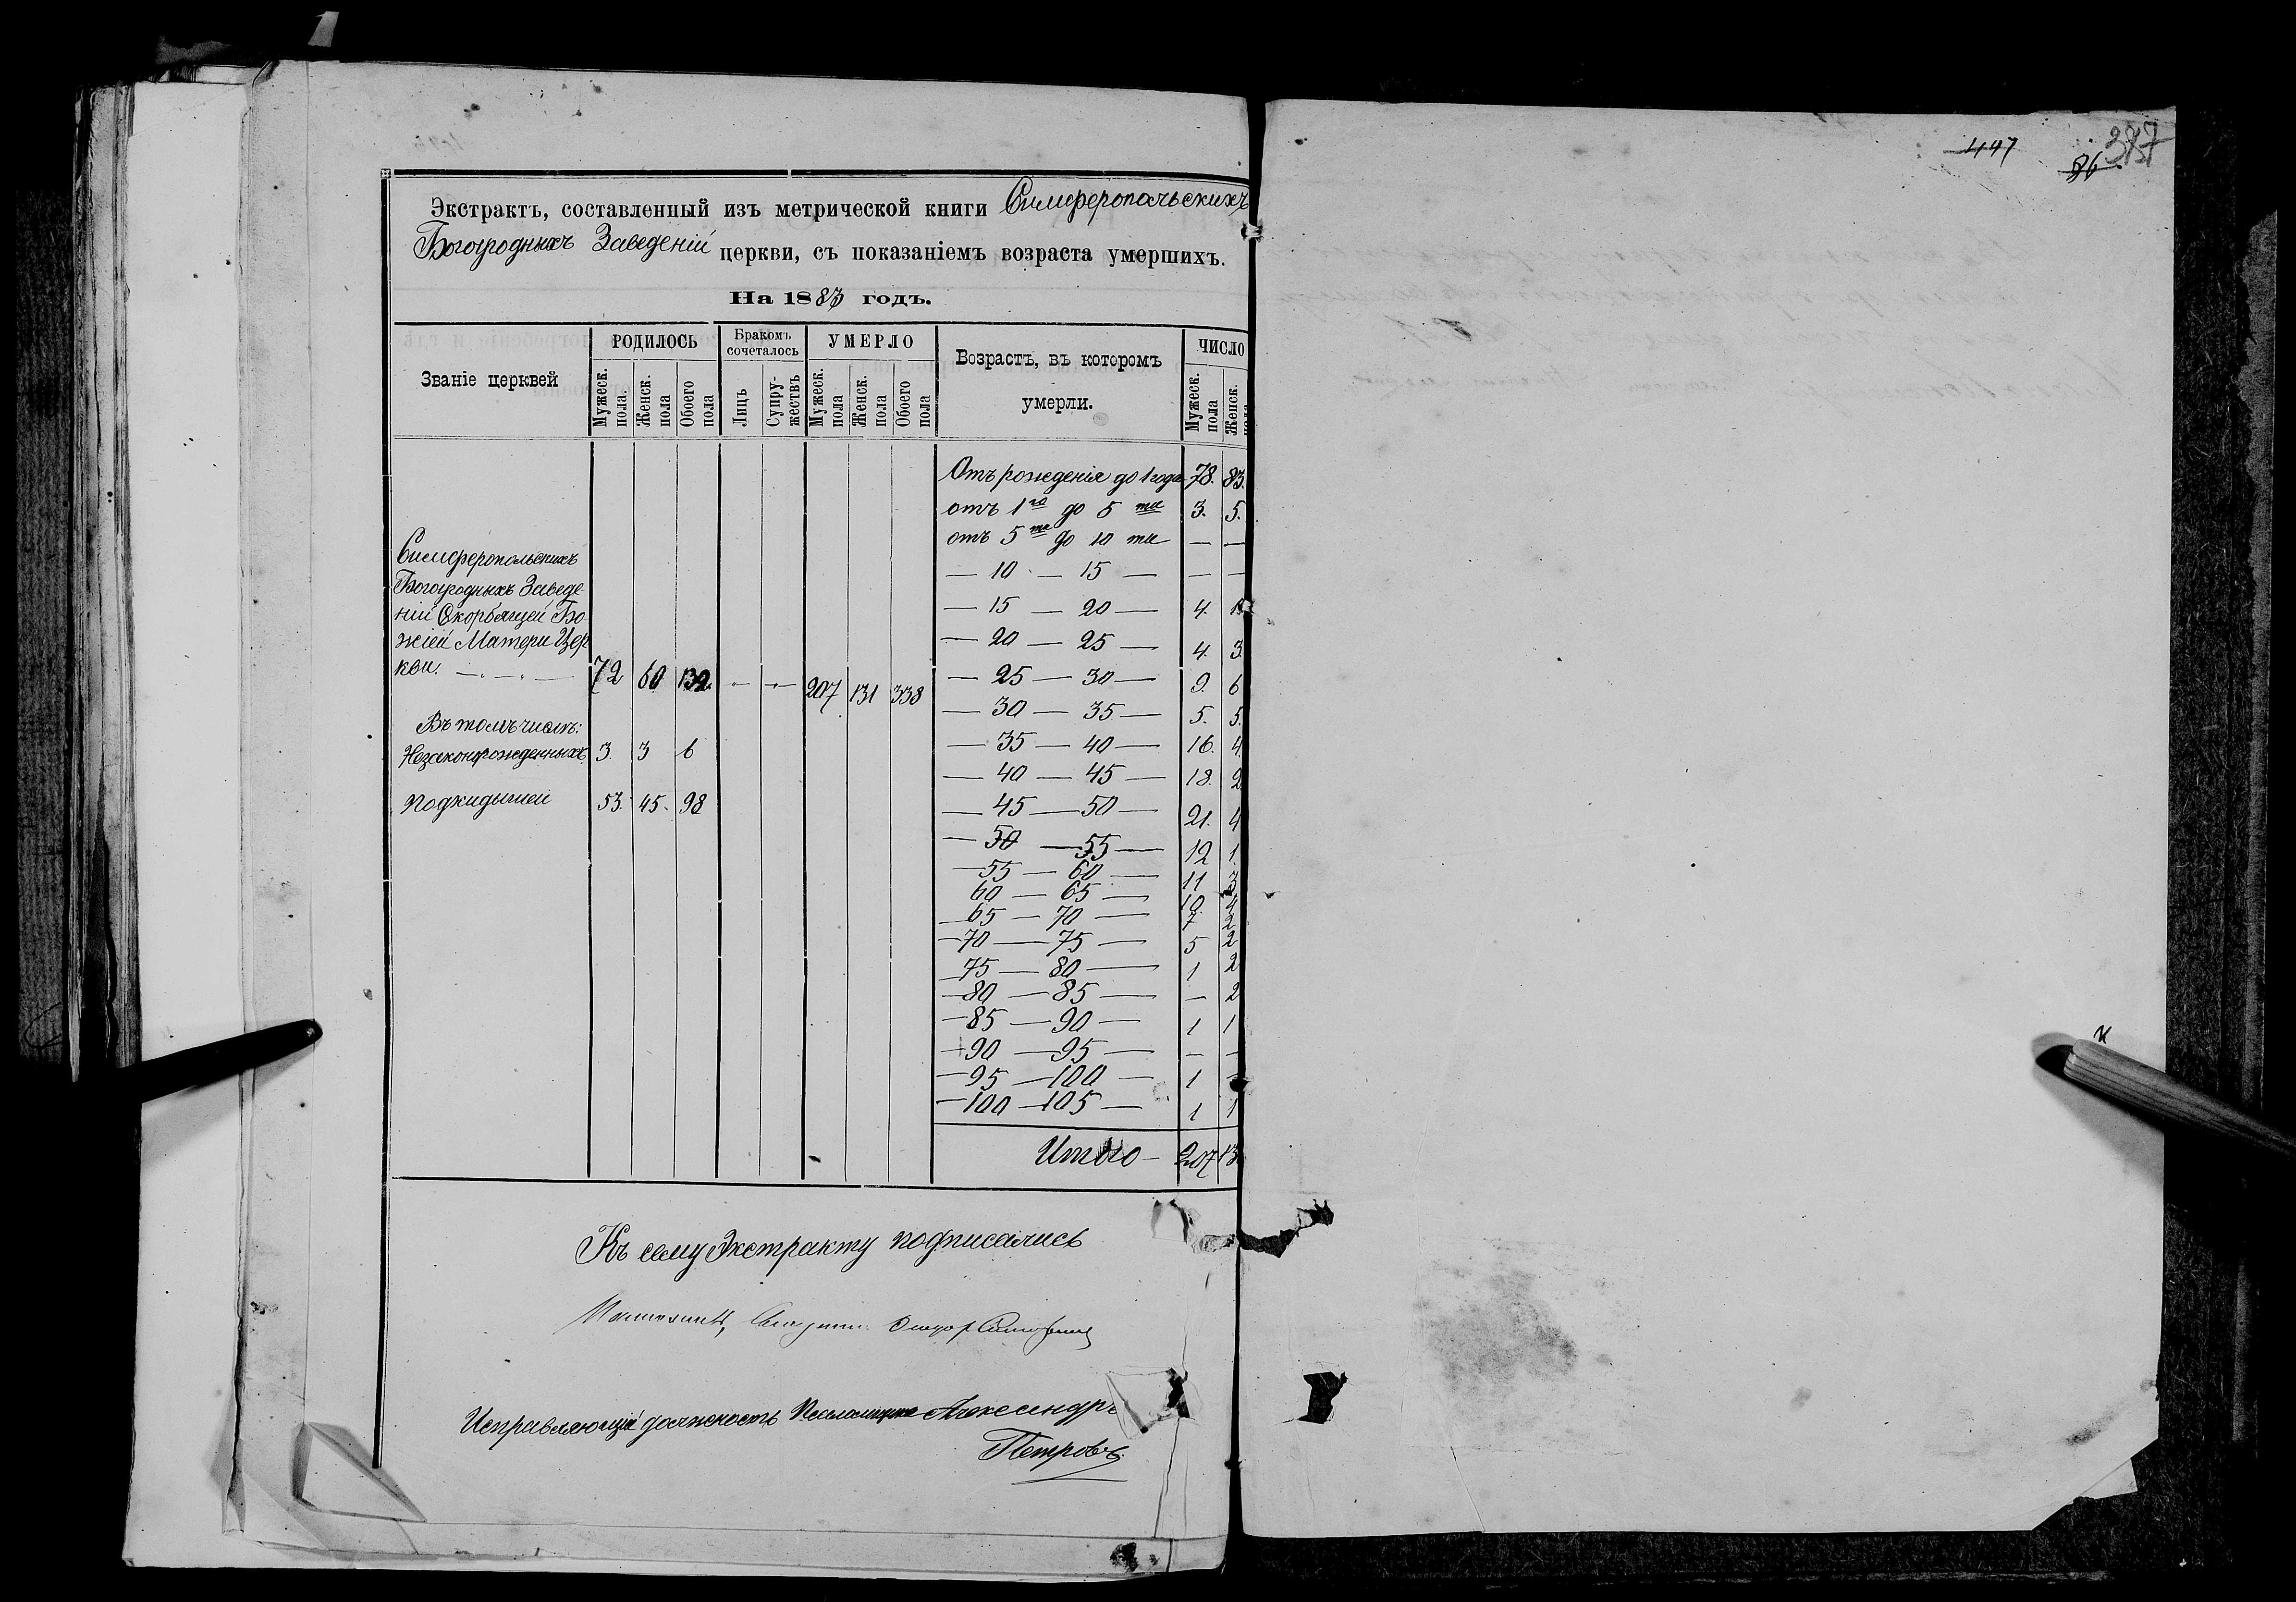 447
86
387
Экстрактъ, составленный изъ метрической книги Симферопольскихъ
Богоугодныхъ Заведеній церкви, съ показаніемъ возраста умершихъ.
На 1883 годъ.
Званіе церквей
РОДИЛОСЬ
Бракомъ сочеталось
УМЕРЛО
Возрастъ, въ которомъ умерли.
ЧИСЛО
Мужеск. пола.
Женск. пола
Обоего пола
Лицъ
Супружествъ
Мужеск. пола
Женск. пола
Обоего пола
Мужеск. пола
Женск. пола
Отъ рожденія до 1 года 78. 83.
отъ 1го до 5 ти 3. 5.
отъ 5ти до 10 ти — —
— 10 — 15 — — —
— 15 — 20 — 4.
— 20 — 25 — 4. 3.
— 25 — 30 — 9. 6
— 30 — 35 — 5. 5.
— 35 — 40 — 16. 4
— 40 — 45 — 18. 2
— 45 — 50 — 21. 4
— 50 — 55 — 12 1.
— 55 — 60 — 11 3
60 — 65 — 10 4
— 65 — 70 — 7 2
— 70 — 75 — 5 2
— 75 — 80 — 1 2
— 80 — 85 — — 2
— 85 — 90 — 1 1
— 90 — 95 — — —
— 95 — 100 — 1
— 100 — 105 — 1 1
Итого — 207 13
Симферопольскихъ
Богоугодныхъ Заведе
ній Скорбящей Бо
жіей Матери Цер
кви. — 72 60 132. — — 207 131 338
Въ томъ числѣ:
Незаконорожденныхъ 3. 3 6
Подкидышей 53. 45. 98
Къ сему Экстракту подписались
Исправляющій должность Псаломщика Александръ
Петровъ.